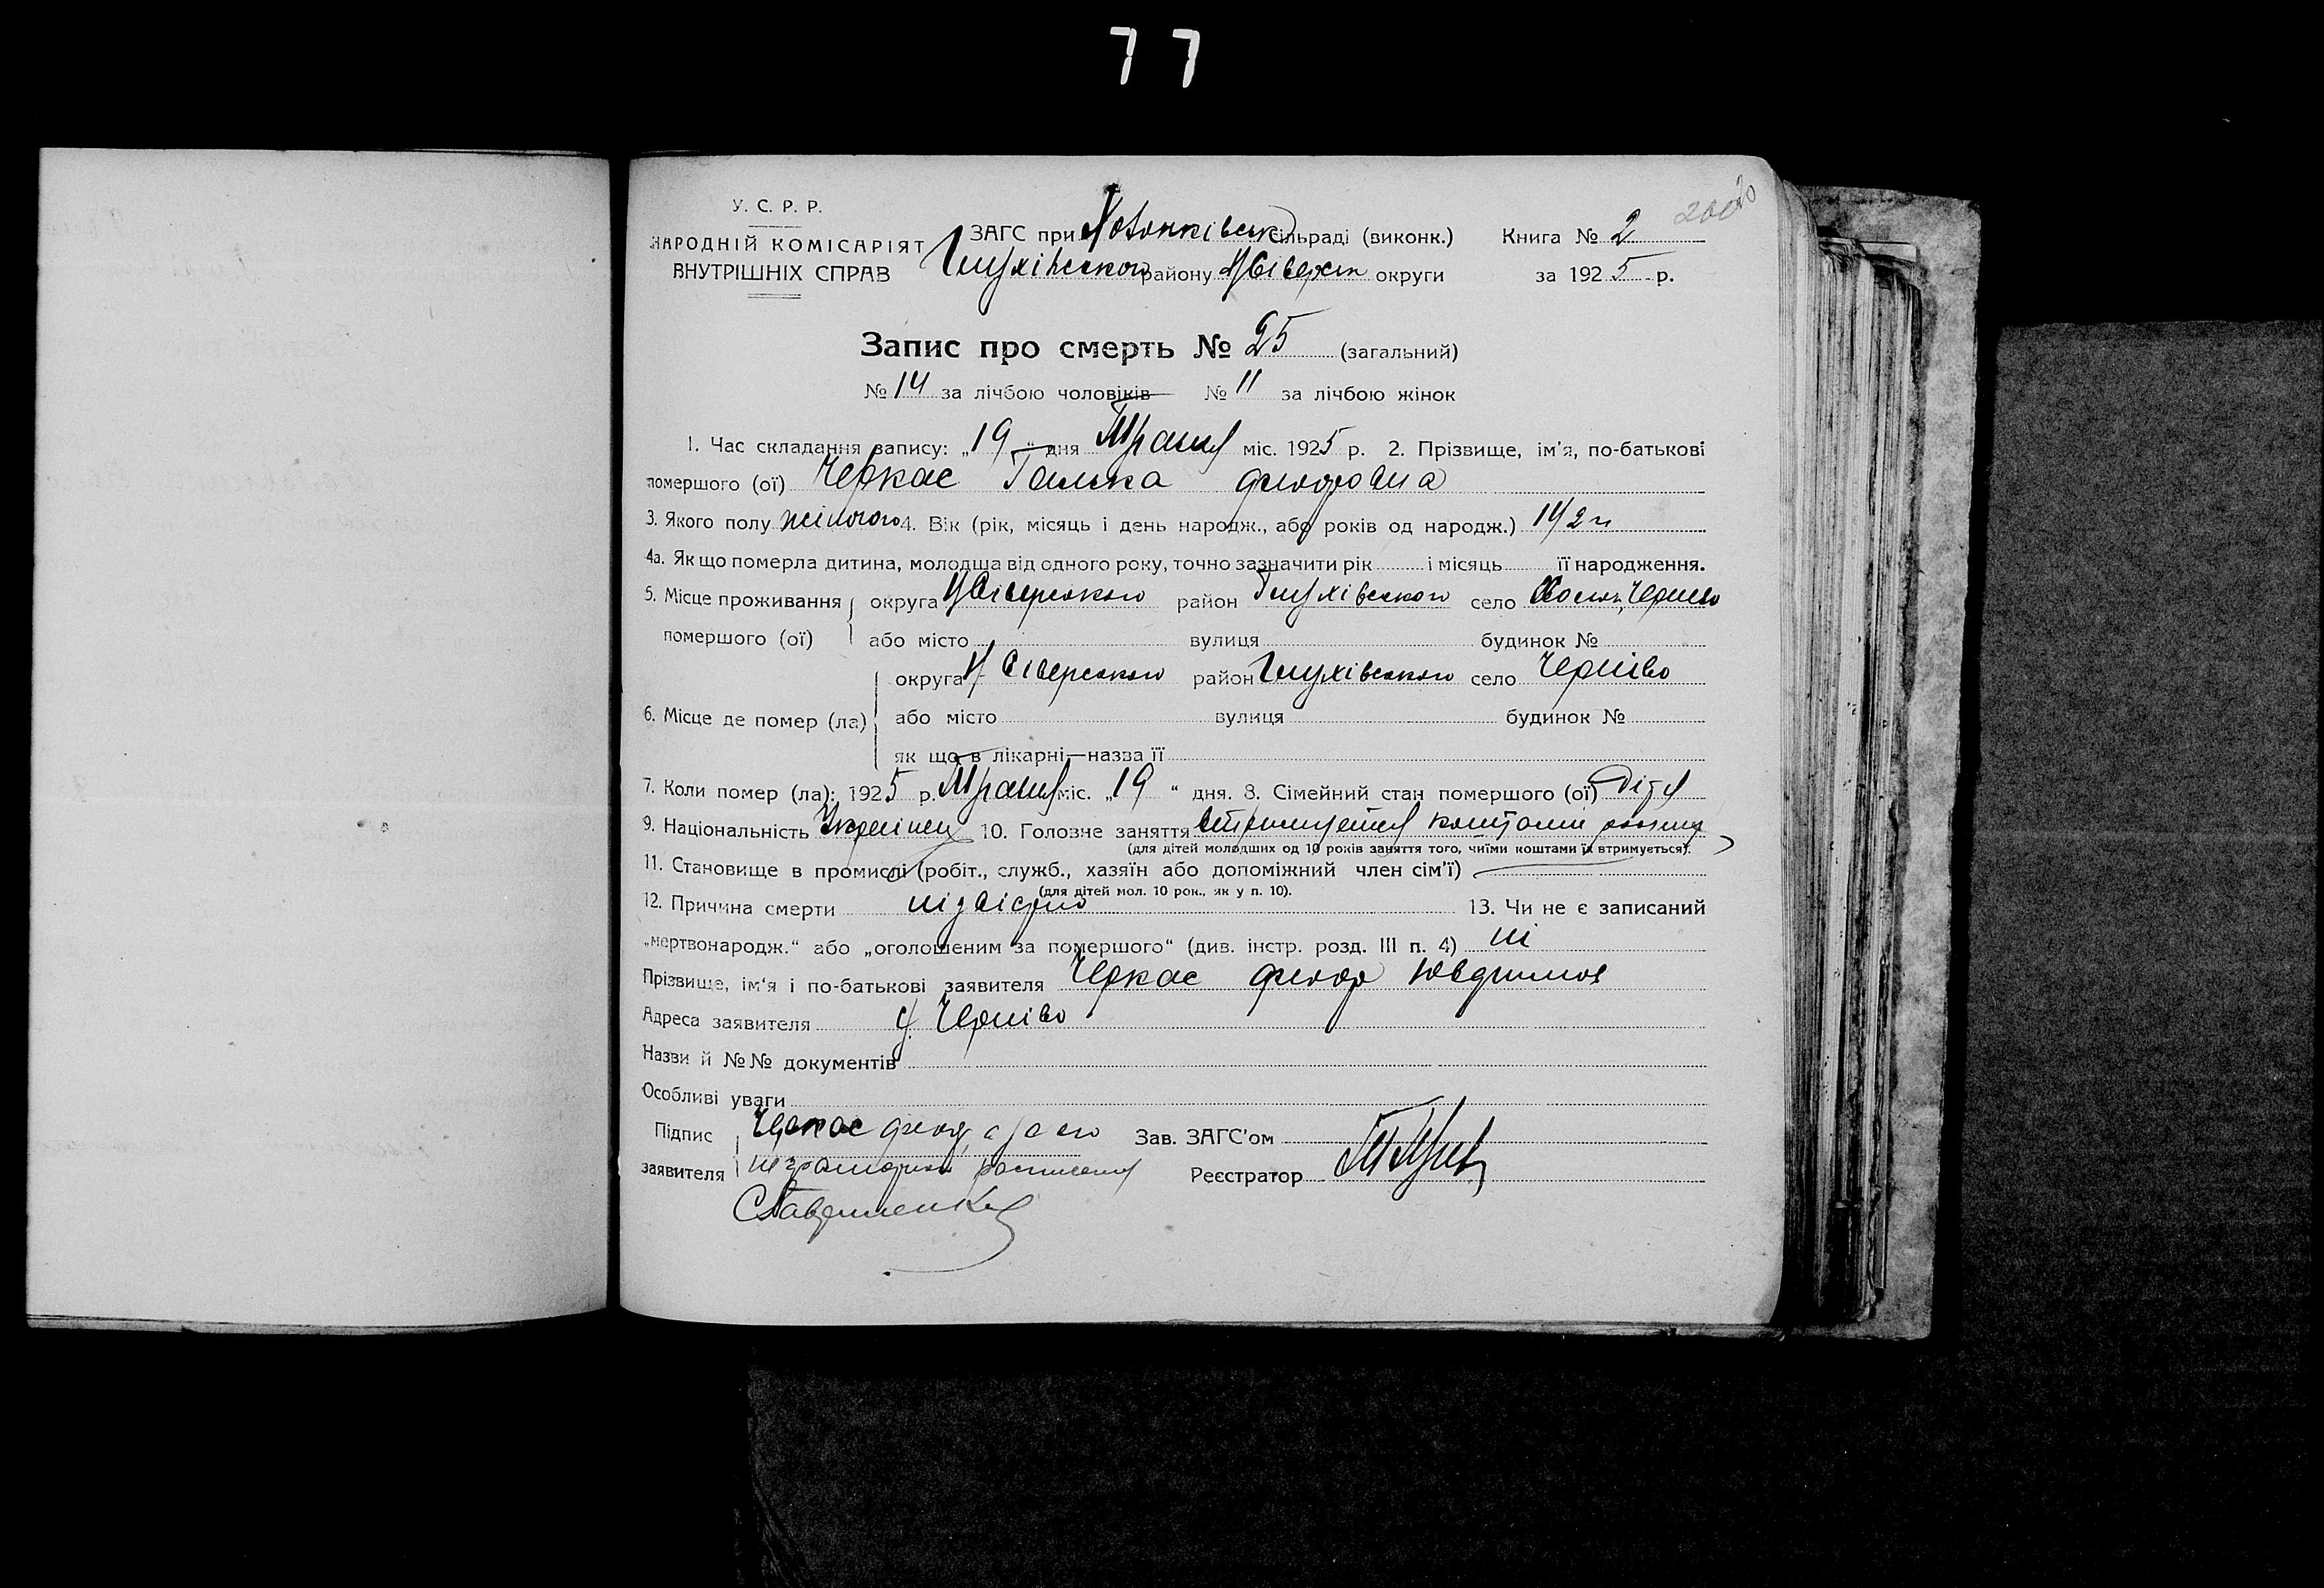 77
200
У. С. Р. Р.
НАРОДНІЙ КОМІСАРІЯТ
ВНУТРІШНІХ СПРАВ
ЗАГС при сільраді (виконк.) Книга № 2
Глухівського району Н Сіверськ округи за 1925 р.
Запис про смерть № 25 (загальний)
№ 14 за лічбою чоловіків № 11 за лічбою жінок
1. Час складання запису: „19“ дня Травня міс. 1925 р. 2. Прізвище, ім'я, по-батькові
помершого (ої) Черкас Галька Федоровна
3. Якого полу жіночого 4. Вік (рік, місяць і день народж., або років од народж.) 1 1/2 г
4а. Як що померла дитина, молодша від одного року, точно зазначити рік і місяць її народження.
5. Місце проживання округа Н Сіверського район Глухівського село
помершого (ої) або місто вулиця будинок №
округа Н Сіверського район Глухівського село Чернієво
6. Місце де помер (ла) або місто вулиця будинок №
як що в лікарні—назва її
7. Коли помер (ла): 1925 р. Травня міс. „19“ дня. 8. Сімейний стан помершого (ої) Дітя
9. Національність Українец 10. Головне заняття коштами
(для дітей молодших од 10 років заняття того, чиїми коштами їх втримується).
11. Становище в промислі (робіт., служб., хазяїн або допоміжний член сім'ї)
(для дітей мол. 10 рок., як у п. 10).
12. Причина смерти 13. Чи не є записаний
„мертвонародж.“ або „оголошеним за помершого“ (див. інстр. розд. III п. 4) ні
Прізвище, ім'я і по-батькові заявителя Черкас Федор
Адреса заявителя
Назви й №№ документів
Особливі уваги
Підпис Черкас Федор, а за его Зав. ЗАГС'ом
заявителя неграмотного Реєстратор